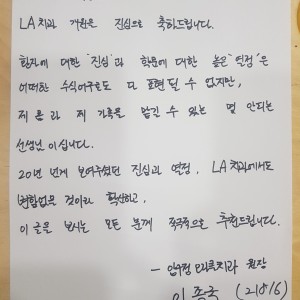 LA치과 개원을 진심으로 축하드립니다.
환자에 대한 '진심'과 학문에 대한 높은 '열정'은
어떠한 수식어구로도 다 표현 될 수 없지만,
제 몸과 제 가족을 맡길 수 있는 몇 안되는
선생님 이십니다.
20년 넘게 보여주셨던 진심과 열정, LA치과에서도
변함없을 것이라 확신하고,
이 글을 보시는 모든 분께 적극적으로 추천드립니다.
치과 원장
이 종국 (210516)